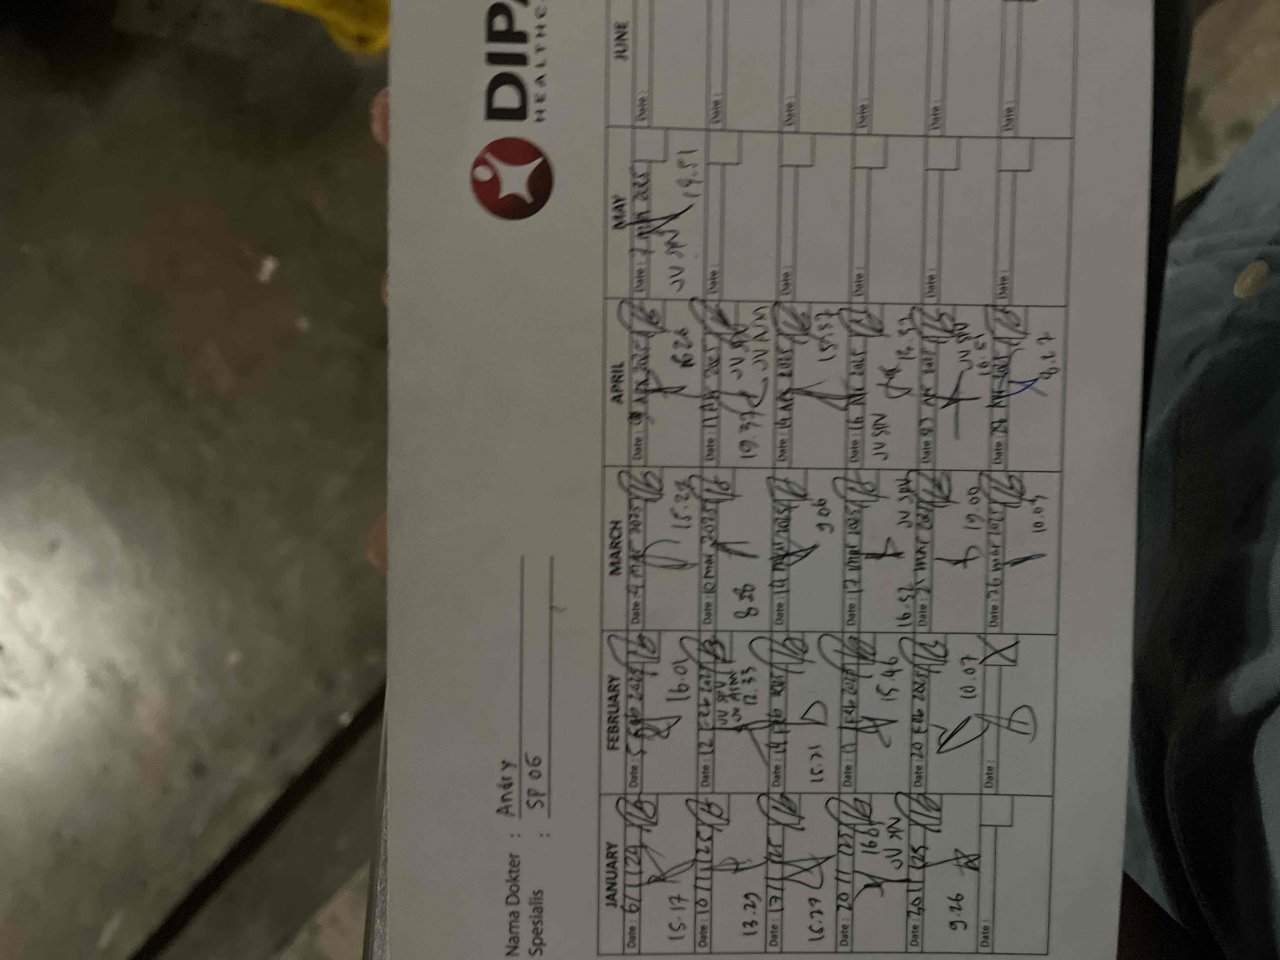 DIPA
HEALTHCA
Nama Dokter : Andry
Spesialis : SP OG
JANUARY FEBRUARY MARCH APRIL MAY JUNE
Date : 6/1/25 Date : 5 Feb 2025 Date : 4 Mar 2025 Date : Apr 2025 Date : 7 Mei 2025 Date :
15.17 16.01 15.23 16.26 JV SPV 14.51
Date : 10/1/25 Date : 12 Feb 2025 Date : 10 Mar 2025 Date : 11 Apr 2025 Date : Date :
13.29 JV SPV 12.33 8.26 19.37 JV SPV JV NSM
Date : 17/1/25 Date : 14 Feb 2025 Date : 14 Mar 2025 Date : 14 Apr 2025 Date : Date :
15.21 9.06 15.57
Date : 20/1/25 Date : Feb 2025 Date : 17 Mar 2025 Date : 16 Apr 2025 Date : Date :
JV SPV 15.46 16.52 JV SPV JV SPV
Date : /1/25 Date : 20 Feb 2025 Date : Mar 2025 Date : Apr 2025 Date : Date :
9.26 10.07 19.00 JV SPV
Date : Date : Date : 26 Mar 2025 Date : 29 Apr 2025 Date : Date :
10.09 8.27